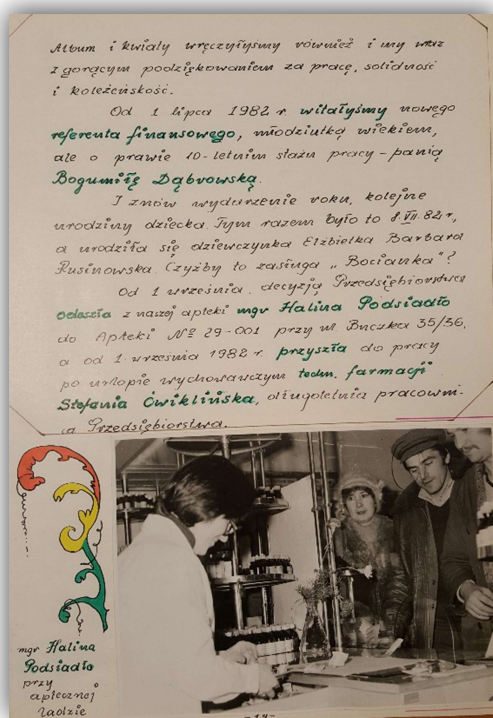 Album i kwiaty wręczyłyśmy również i my wraz
z gorącym podziękowaniem za pracę, solidność
i koleżeńskość.
Od 1 lipca 1982 r. witałyśmy nowego
referenta finansowego, młodziutką wiekiem,
ale o prawie 10-letnim stażu pracy - panią
Bogumiłę Dąbrowską.
I znów wydarzenie roku, kolejne
urodziny dziecka. Tym razem było to 8.VII.82 r,
a urodziła się dziewczynka Elżbietka Barbara
Rusinowska. Czyżby to zasługa „Bocianka"?
Od 1 września, decyzją Przedsiębiorstwa
odeszła z naszej apteki mgr Halina Podsiadło
do Apteki Nº 29-001 przy ul. Buczka 35/36,
a od 1 września 1982 r. przyszła do pracy
po urlopie wychowawczym techn. farmacji
Stefania Ćwiklińska, długoletnia pracowni-
ca Przedsiębiorstwa.
mgr Halina
Podsiadło
przy
aptecznej
ladzie